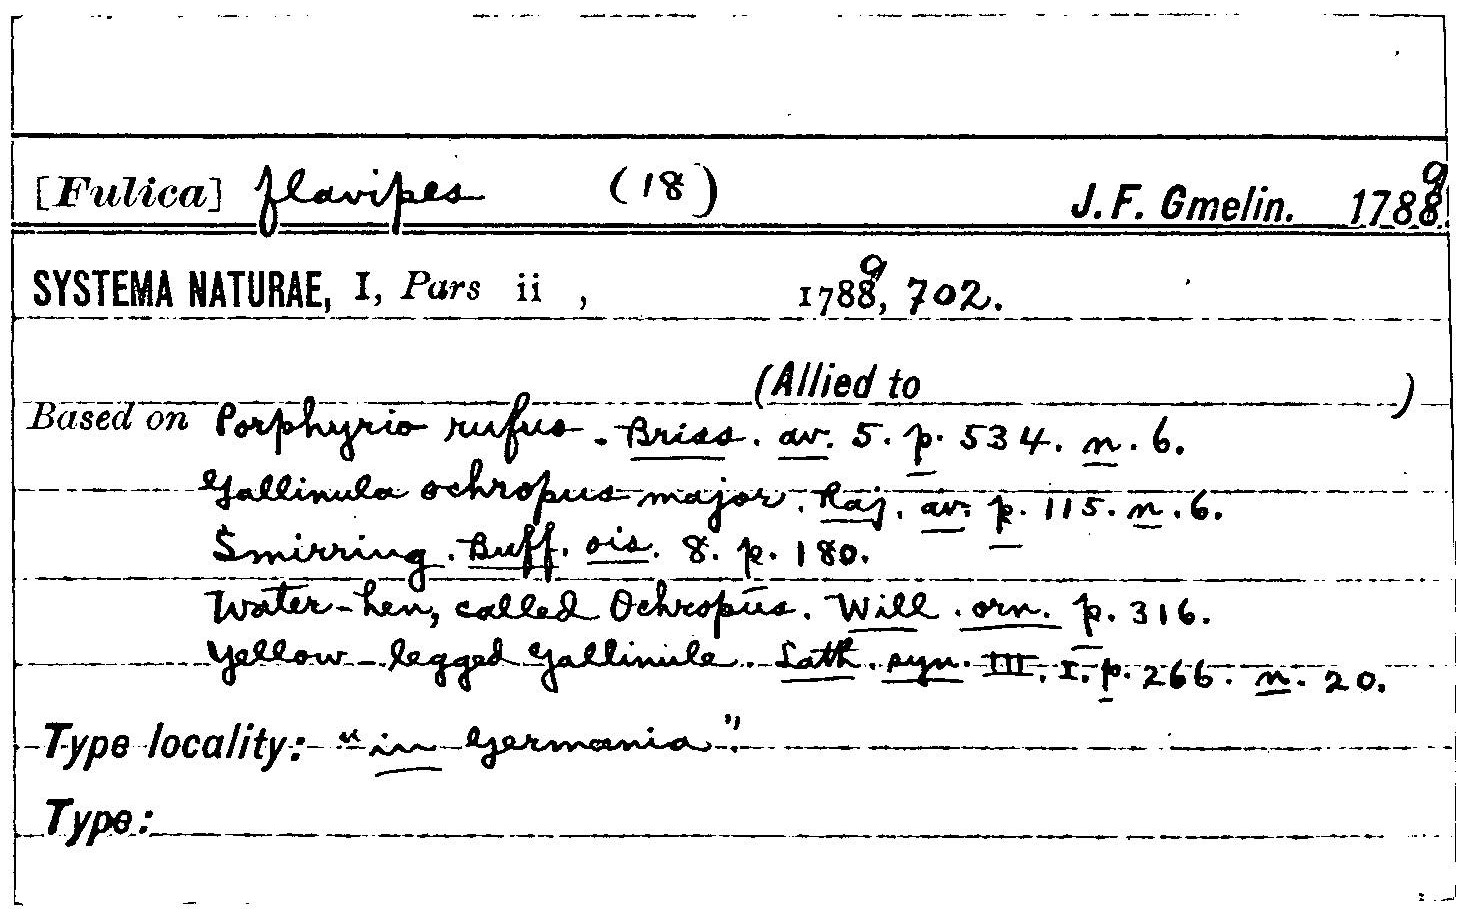 [Fulica] flavipes (18) J. F. Gmelin. 1788 9
SYSTEMA NATURAE, I, Pars ii , 1788 9, 702.
(Allied to )
Based on Porphyrio rufus. Briss. av. 5. p. 534. n. 6.
Gallinula ochropus major. Raj. av. p. 115. n. 6.
Smirring. Buff. ois. 8. p. 180.
Water-hen, called Ochropus. Will. orn. p. 316.
Yellow-legged Gallinule. Lath. syn. III. I. p. 266. n. 20.
Type locality: "in Germania".
Type: